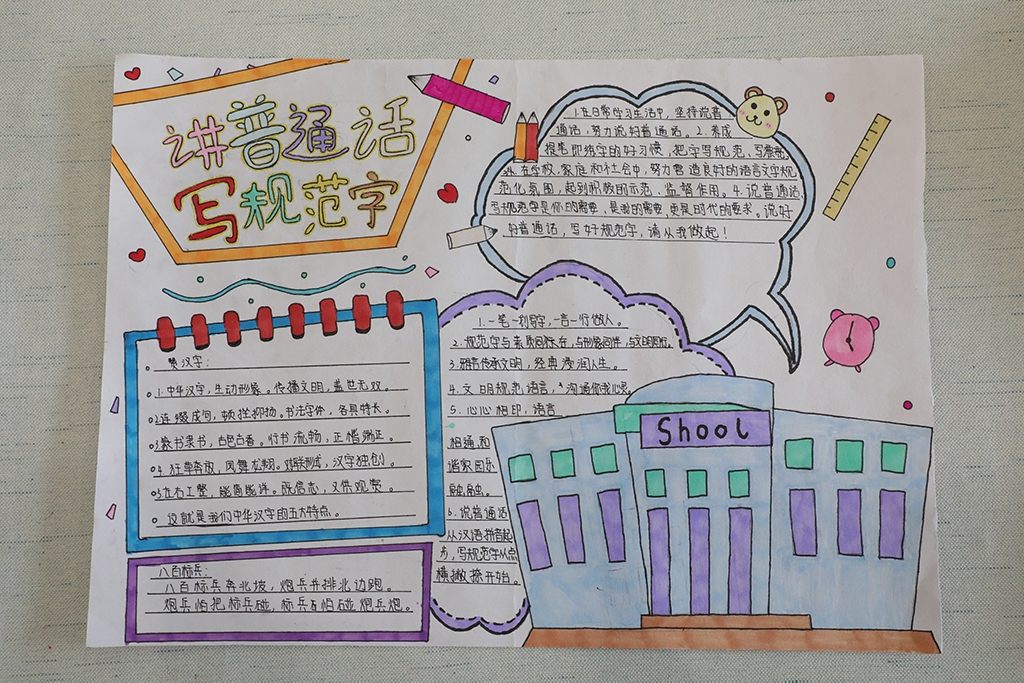 讲普通话
写规范字
1.在日常学习生活中,坚持说普
通话,努力说好普通话。2.养成
提笔即练字的好习惯,把字写规范、写
在学校、家庭和社会中,努力营造良好的语言文字规
范化氛围,起到积极的示范、监督作用。4.说普通话,
写规范字是你的需要,是我的需要,更是时代的要求。说好
好普通话,写好规范字,请从我做起!
赞汉字:
1.中华汉字,生动形象。传播文明,盖世无双。
2连缀成句,顿挫抑扬。书法字体,各具特长。
3篆书隶书,古色古香。行书流畅,正楷端正。
4.狂草奔放,凤舞龙翔。对联形式,汉字独创。
5左右工整,能简能详。既信志,又供观赏。
这就是我们中华汉字的五大特点。
八百标兵:
八百标兵奔北坡,炮兵并排北边跑。
炮兵怕把标兵碰,标兵怕碰炮兵炮。
1.一笔一划写字,一言一行做人。
2.规范字与素质同在,与形象同伴,与文明同行。
3.雅言传承文明,经典浸润人生。
4.文明规范语言,沟通你我心灵。
5.心心相印,语言
相通,和
谐家园乐
融融。
6.说普通话
从汉语拼音起
步,写规范字从点
横撇捺开始。
Shool